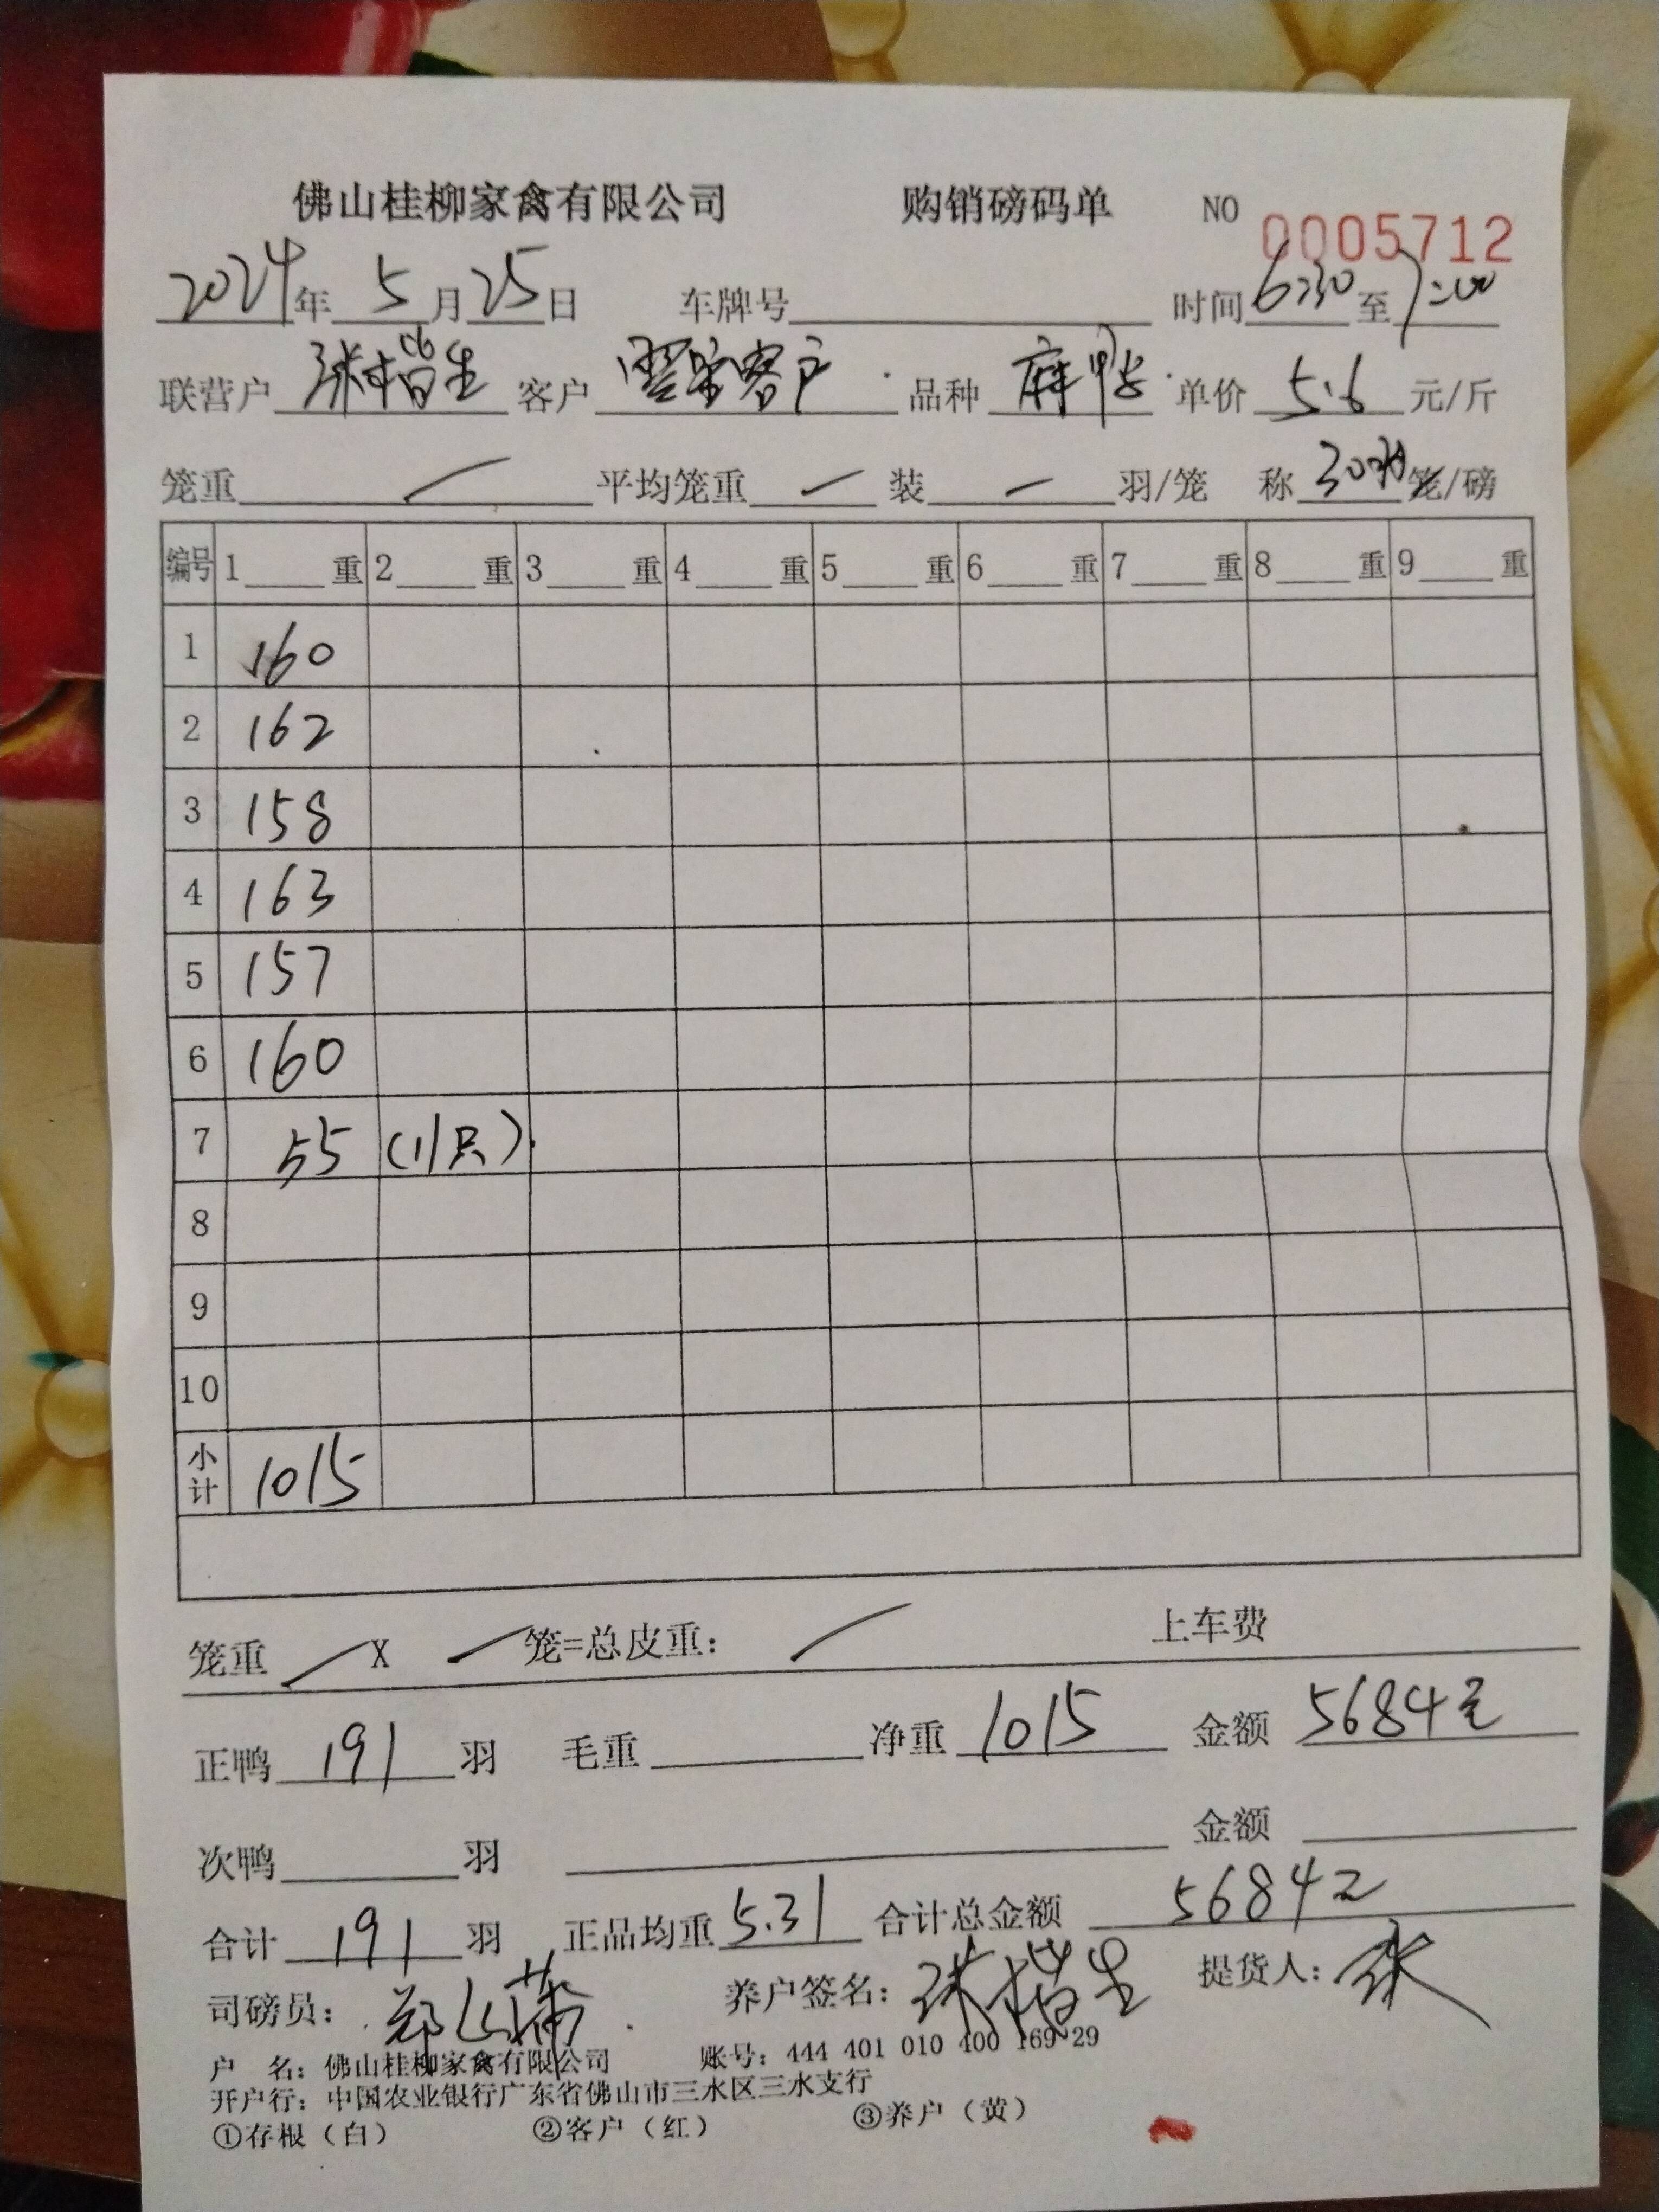 佛山桂柳家禽有限公司 购销磅码单 NO 0005712
2024年 5月25日 车牌号 时间6:30至7:00
联营户 张楷生 客户 零宗客户 品种 麻鸭 单价 5.6 元/斤
笼重 / 平均笼重 / 装 / 羽/笼 称 30羽 笼/磅
编号 1 重 2 重 3 重 4 重 5 重 6 重 7 重 8 重 9 重
1 160
2 162
3 158
4 163
5 157
6 160
7 55 (11只)
8
9
10
小计 1015
笼重 / X / 笼=总皮重: / 上车费
正鸭 191 羽 毛重 净重 1015 金额 5684元
次鸭 羽 金额
合计 191 羽 正品均重 5.31 合计总金额 5684元
司磅员: 养户签名: 张楷生 提货人: 张
户 名: 佛山桂柳家禽有限公司 账号: 444 401 010 400 169 29
开户行: 中国农业银行广东省佛山市三水区三水支行
①存根（白） ②客户（红） ③养户（黄）